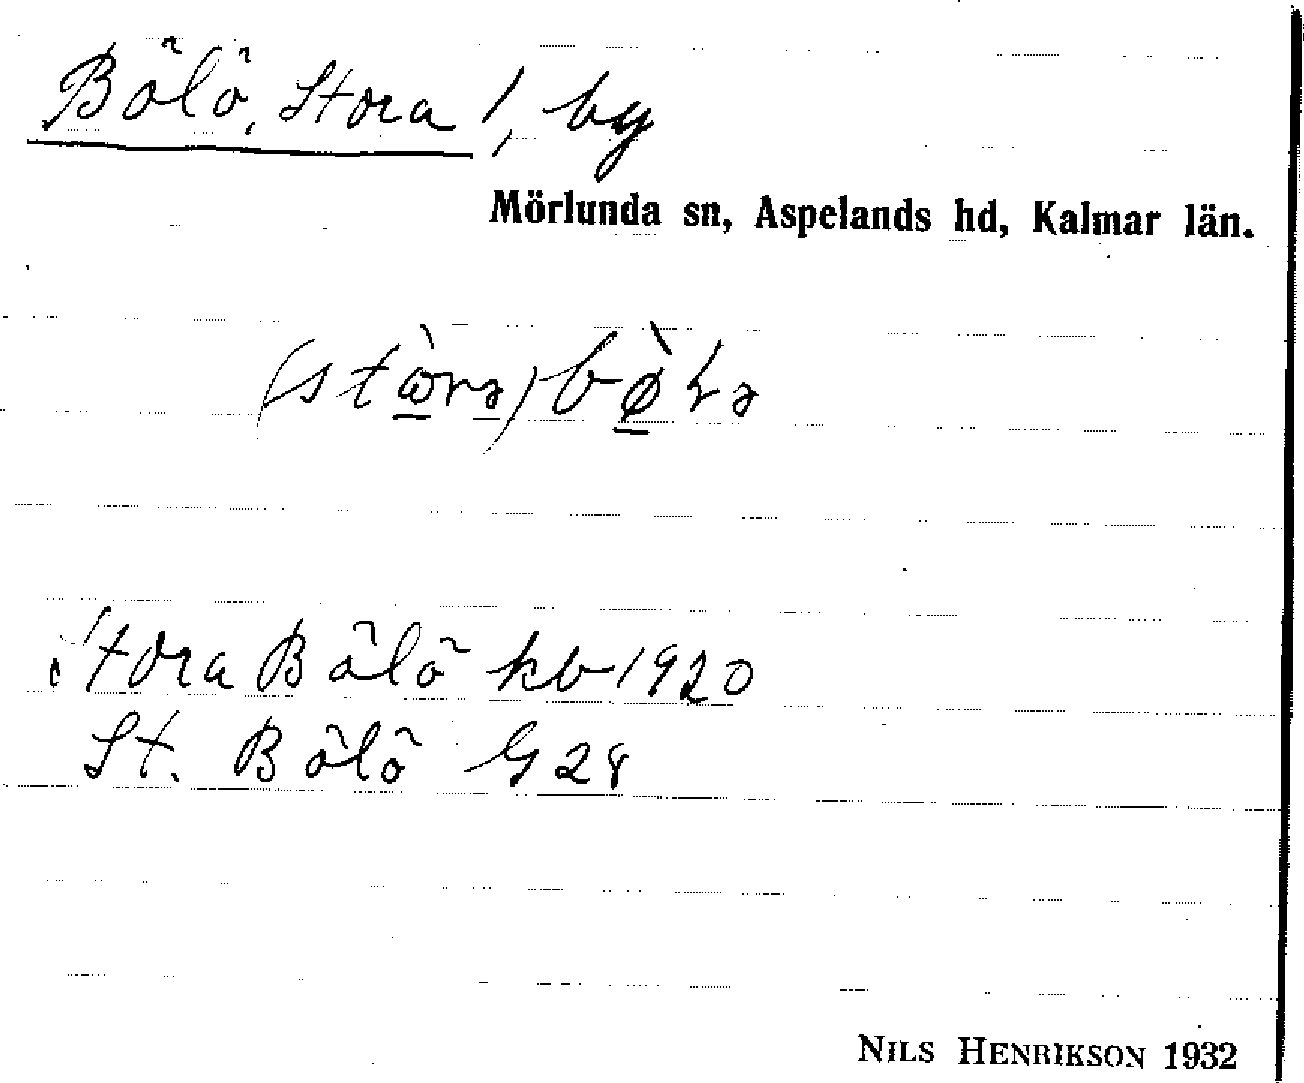 Bölö, Stora /, by
Mörlunda sn, Aspelands hd, Kalmar län.
Stora Bölö kb 1920
St. Bölö G 28
NILS HENRIKSON 1932